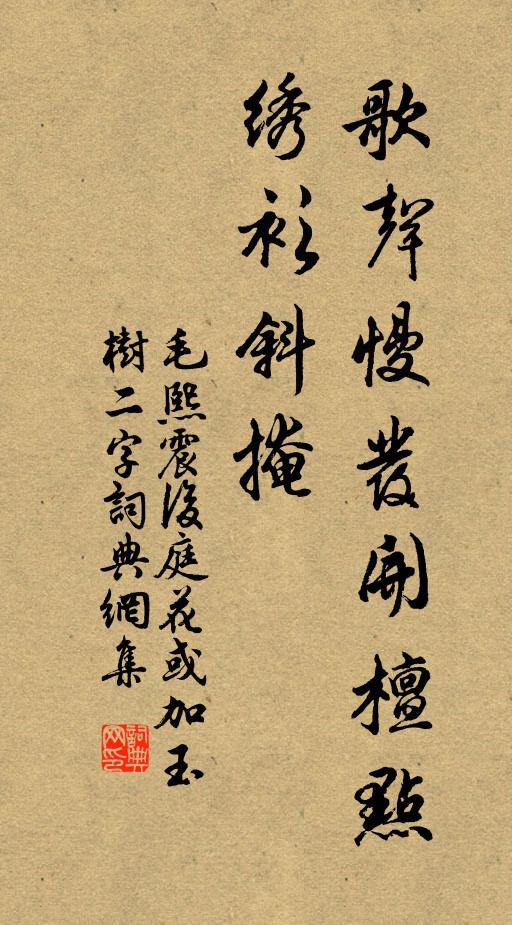 歌聲慢發開檀點
绣衫斜掩
毛熙震後庭花或加玉
樹二字詞典網集
詞典网印